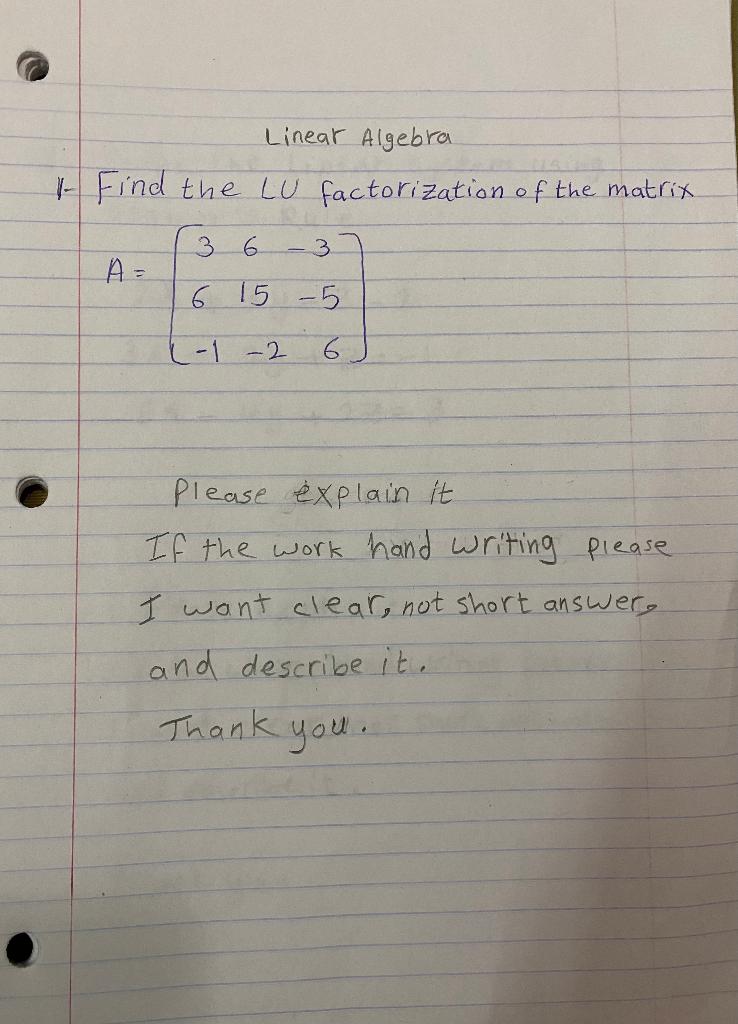 Linear Algebra
1- Find the LU factorization of the matrix
A = [ 3 6 -3
6 15 -5
-1 -2 6 ]
Please explain it
If the work hand writing please
I want clear, not short answer,
and describe it.
Thank you.